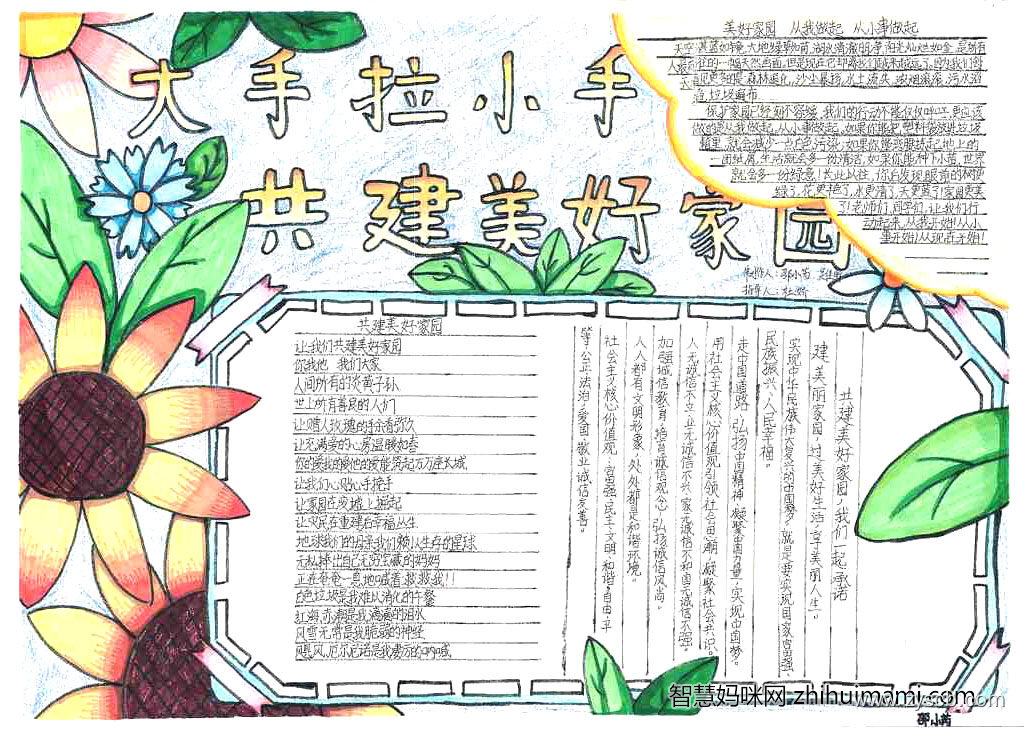 大手拉小手
共建美好家园
美好家园 从我做起 从小事做起
保护家园已经刻不容缓,我们的行动不能仅仅呼吁,更应该
做的是从我做起,从小事做起。如果你能把塑料袋放进垃圾
箱里,就会减少一点白色污染;如果你能弯腰拣起地上的
一团纸屑,生活就会多一份清洁,如果你能种下小苗,世界
就会多一份绿意!长此以往,你会发现眼前的树更
绿了,花更艳了,水更清了,天更蓝了!家园更美
了!老师们,同学们,让我们行
动起来,从我开始!从小
事开始!从现在开始!
指导人:杜娇
共建美好家园
让我们共建美好家园
你我他 我们大家
人间所有的炎黄子孙
世上所有善良的人们
让赠人玫瑰的手余香弥久
让充满爱的心房温暖如春
让我们心贴心手挽手
让家园在废墟上挺起
让灾民在重建后幸福丛生
地球我们的母亲我们赖以生存的星球
无私捧出自己无穷宝藏的妈妈
正在奄奄一息地喊着:救救我!!
白色垃圾是我难以消化的午餐
红海,赤潮是我滴滴的泪水
风雪无常是我脆弱的神经
飓风,厄尔尼诺是我凄厉的呐喊
共建美好家园,我们一起承诺
建美丽家园,过美好生活,享美丽人生”。
实现中华民族伟大复兴的中国梦,就是要实现国家富强、
民族振兴、人民幸福。
走中国道路、弘扬中国精神、凝聚中国力量,实现中国梦。
用社会主义核心价值观引领社会思潮、凝聚社会共识。
人无诚信不立,业无诚信不兴,家无诚信不和,国无诚信不强。
加强诚信教育,培育诚信观念,弘扬诚信风尚。
人人都有文明形象,处处都是和谐环境。
社会主义核心价值观:富强、民主、文明、和谐,自由、平
等、公正、法治,爱国、敬业、诚信、友善。
智慧妈咪网 zhihuimami.com
邵小芮